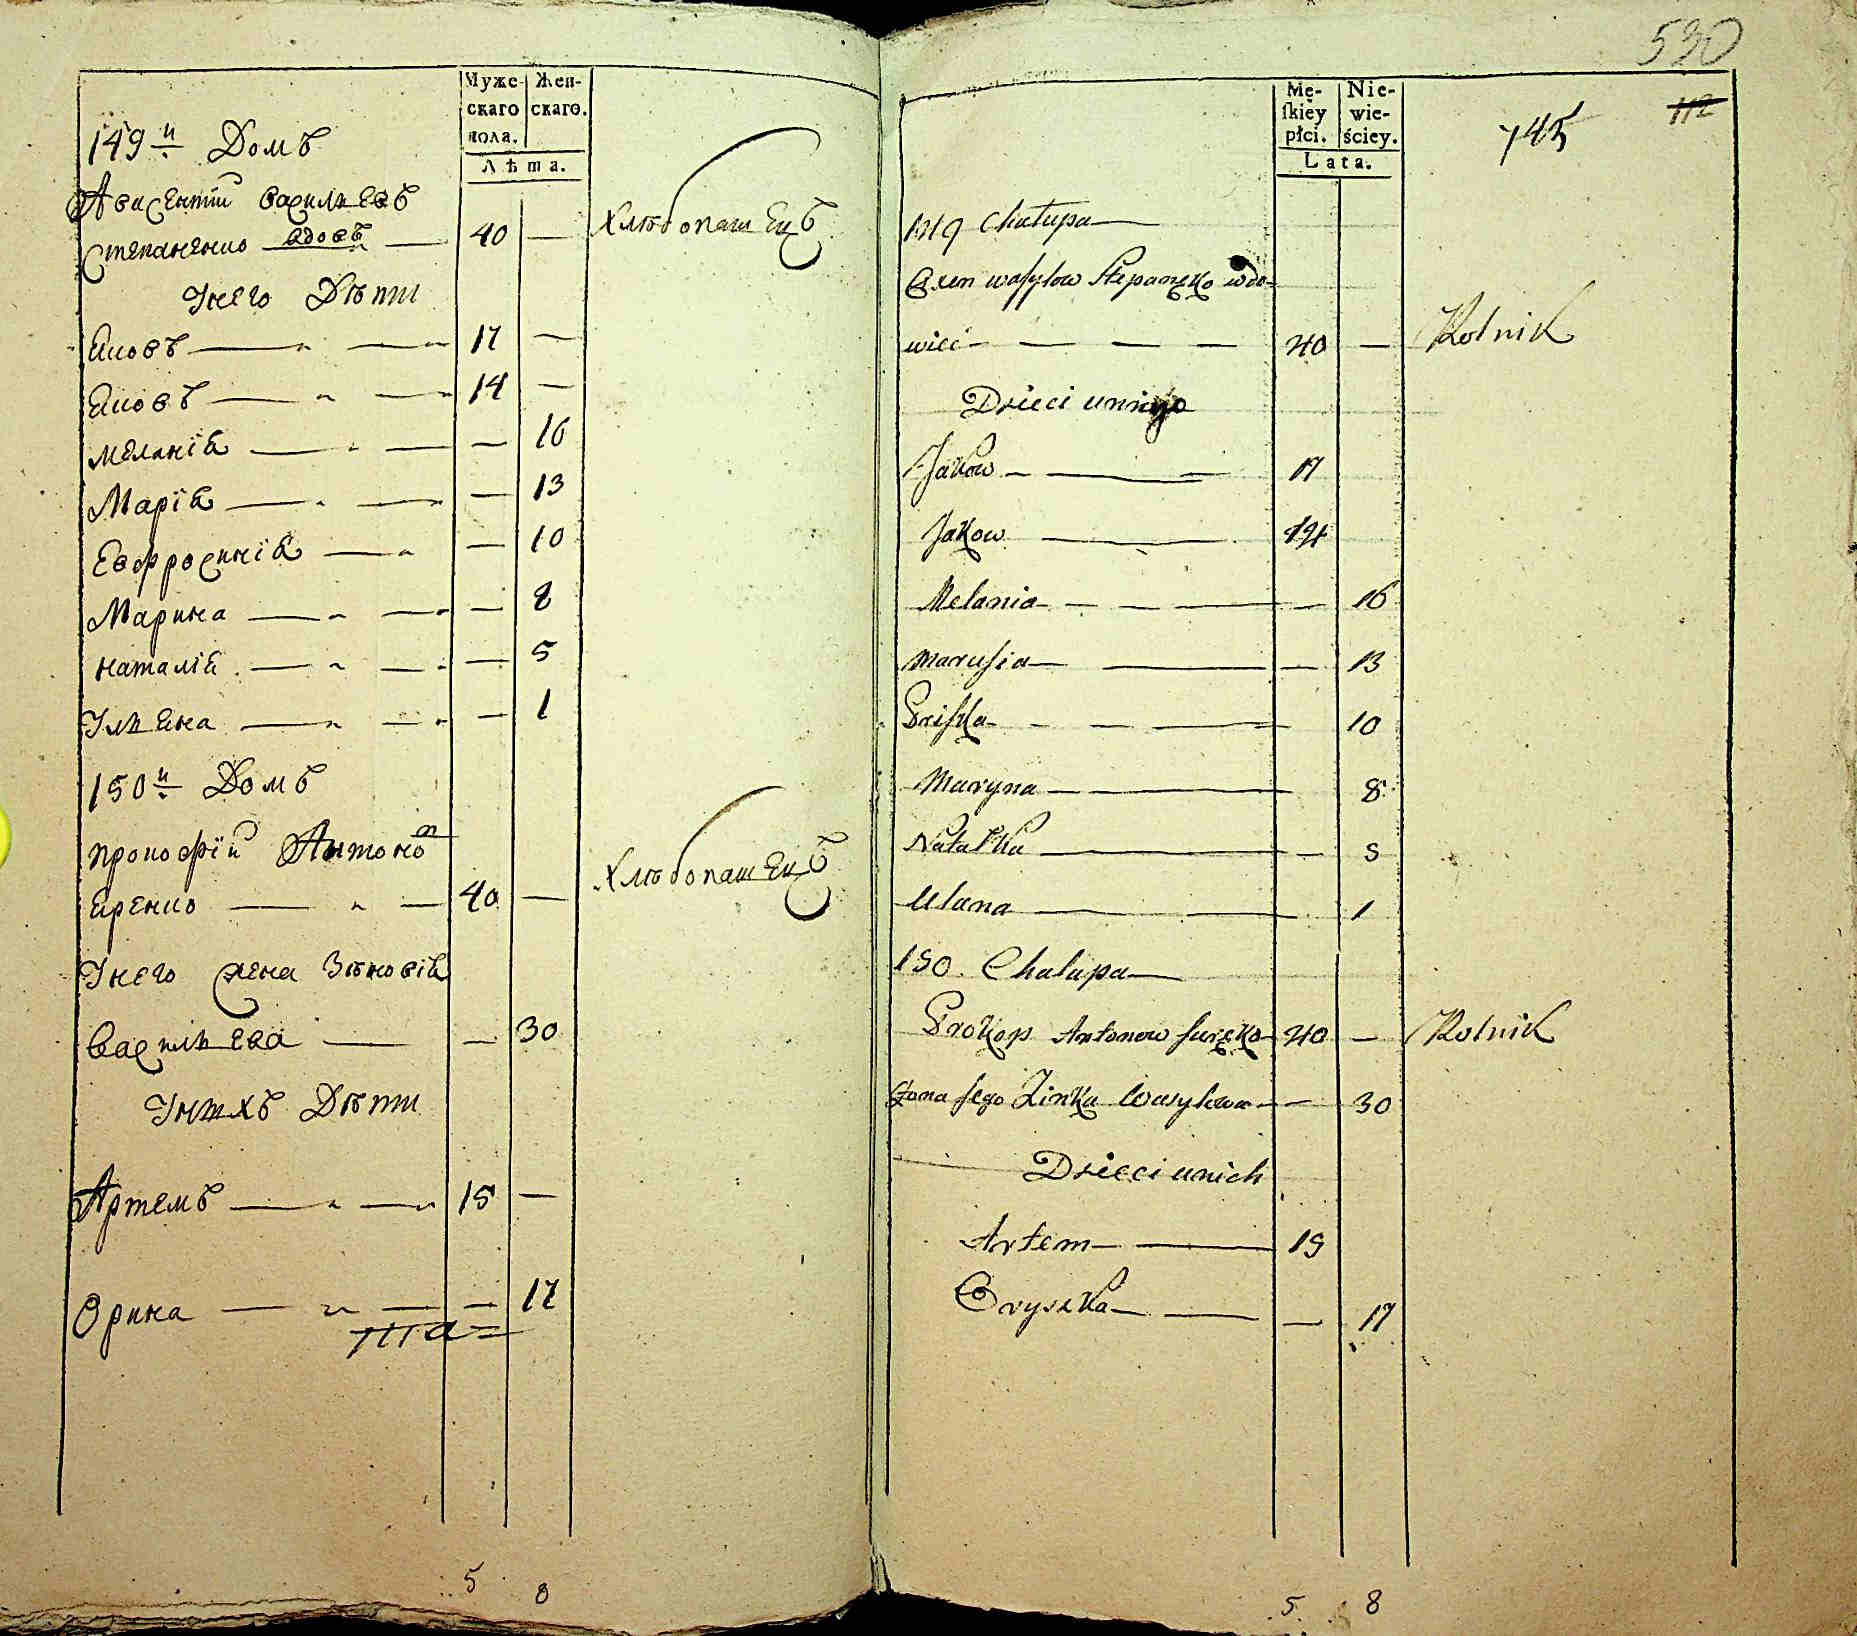 Муже-
скаго
пола.
Жен-
скаго.
Лѣта.
149й Домъ
Авксентий василиевъ
Степаненко вдовъ — 40 — Хлѣбопашецъ
Унего Дѣти
Яковъ — 17 —
Яковъ — 14 —
мелания — — 16
Мария — — 13
Евфросиния — — 10
Марина — — 8
наталия — — 5
Улияна — — 1
150й Домъ
прокофий Антонов
Яренко — 40 — Хлѣбопашецъ
Унего жена Зѣновия
василиева — — 30
Унихъ Дѣти
Артемъ — 15 —
Орина — — 17
5 8
530
112
745
Mę-
skiey
płci.
Nie-
wie-
ściey.
Lata.
149 Chałupa
wasylow Stepanęko wdo-
wiec — 40 — Rolnik
Dzieci uniego
Jakow — 17
Jakow — 14
Melania — — 16
Marusia — — 13
Priska — 10
Maryna — 8
Natałka — — 5
Ulana — 1
150. Chalupa
Prokop Antonow Juręko 40 — Rolnik
żona jego Zinka Wasylowa — — 30
Dzieci unich
Artem — 15
Oryszka — — 17
5. 8